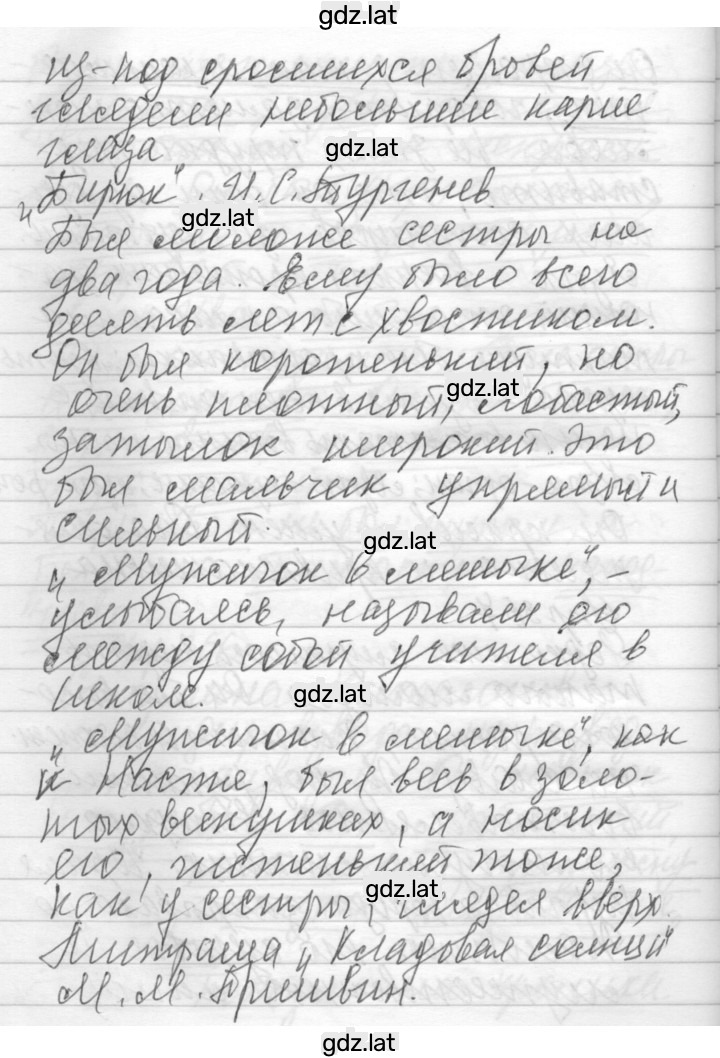 gdz.lat
из-под сросшихся бровей
глядели небольшие карие
глаза
gdz.lat
„Бирюк". И.С.Тургенев.
gdz.lat
Был моложе сестры на
два года. Ему было всего
десять лет с хвостиком.
Он был коротенький, но
gdz.lat
очень плотный, лобастый,
затылок широкий. Это
был мальчик упрямый и
сильный.
gdz.lat
„Мужичок в мешочке", -
улыбаясь, называли его
между собой учителя в
школе.
gdz.lat
„Мужичок в мешочке", как
и Настя, был весь в золо-
тых веснушках, а носик
его, чистенький тоже,
gdz.lat
как у сестры, глядел вверх.
Митраша „Кладовая солнца"
М. М. Пришвин.
gdz.lat